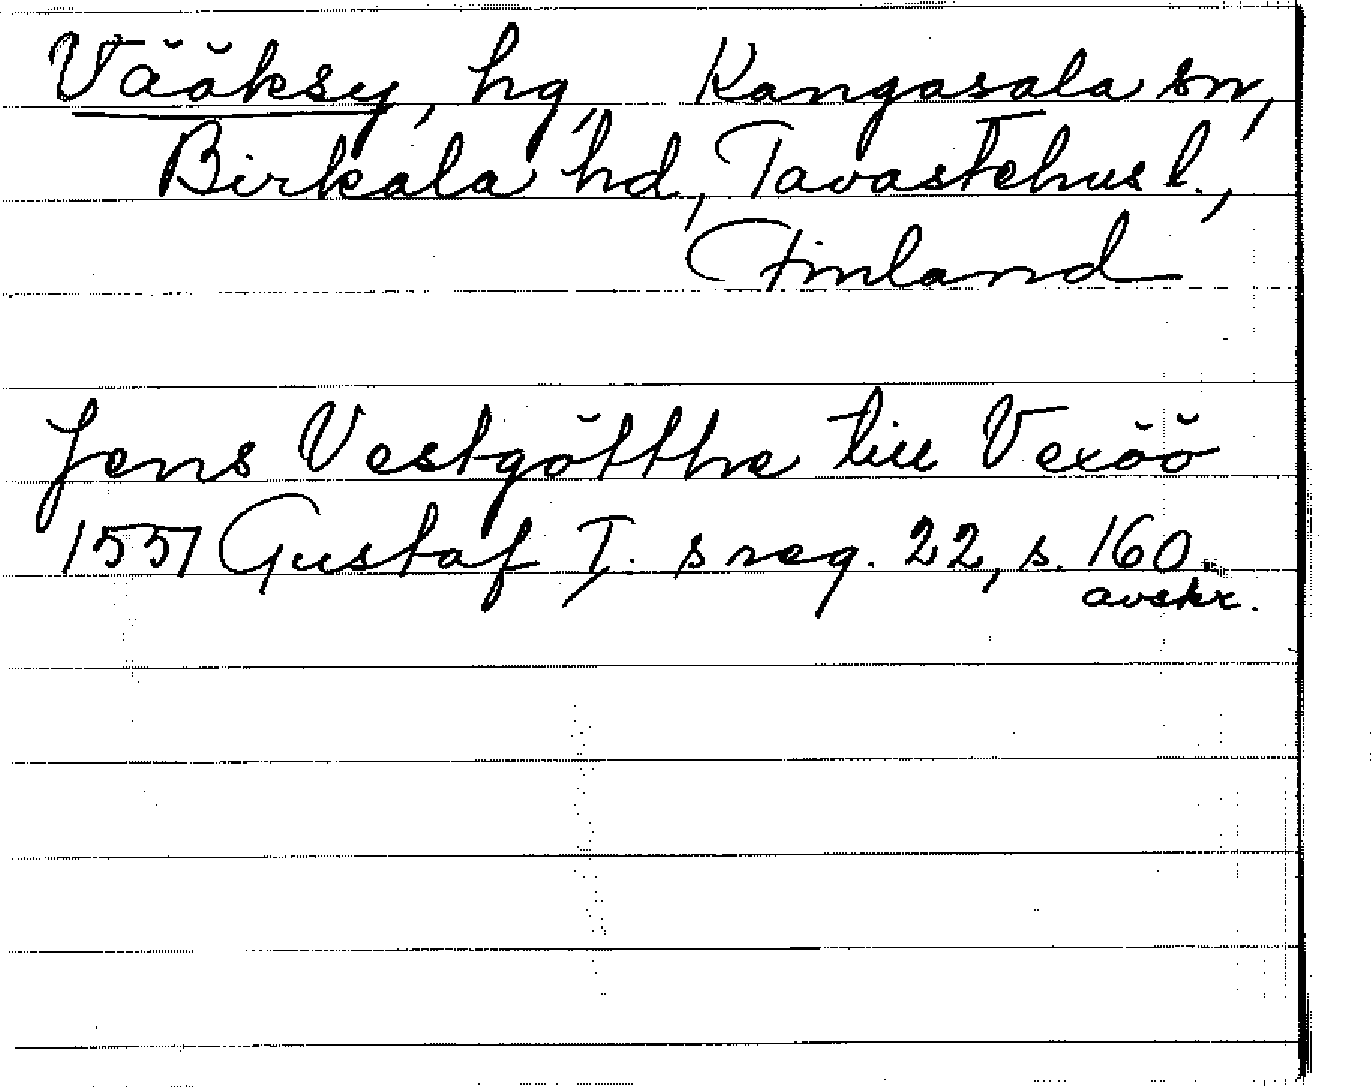 Vääksy, hg, Kangasala sn,
Birkala hd, Tavastehus l.,
Finland
Jens Vestgöthe till Vexöö
1557 Gustaf I. s reg. 22, s. 160
avskr.